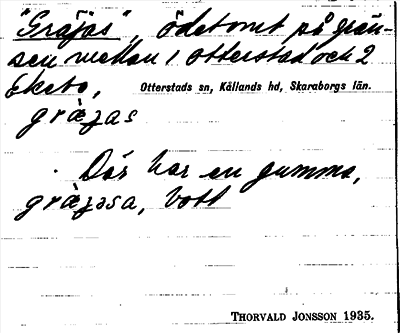 "Gräjas", ödetomt på grän-
sen mellan 1 Otterstad och 2
Ekebo,
Otterstads sn, Kållands hd, Skaraborgs län.
gràȷas
Där har en gumma,
gràȷasa, bott
THORVALD JONSSON 1935.